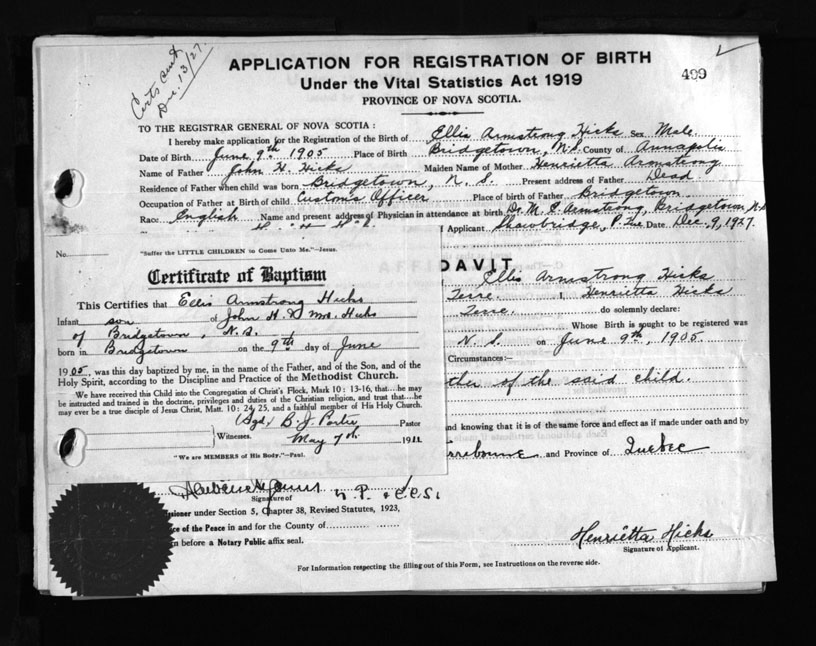 Certs sent
Dec. 13/27.
APPLICATION FOR REGISTRATION OF BIRTH
499
Under the Vital Statistics Act 1919
PROVINCE OF NOVA SCOTIA.
TO THE REGISTRAR GENERAL OF NOVA SCOTIA:
I hereby make application for the Registration of the Birth of Ellis Armstrong Hicks Sex Male
Date of Birth June 9th 1905 Place of Birth Bridgetown, N.S. County of Annapolis
Name of Father John H. Hicks Maiden Name of Mother Henrietta Armstrong
Residence of Father when child was born Bridgetown, N. S. Present address of Father Dead
Occupation of Father at Birth of child Customs Officer Place of birth of Father Bridgetown
Race English Name and present address of Physician in attendance at birth Dr. M. E. Armstrong, Bridgetown, N.S.
Applicant Shawbridge, P. Que Date Dec. 9, 1927.
No.
"Suffer the LITTLE CHILDREN to Come Unto Me."—Jesus.
Certificate of Baptism
This Certifies that Ellis Armstrong Hicks
Infant son of John H. & Mrs. Hicks
of Bridgetown, N.S.
born in Bridgetown on the 9th day of June
1905, was this day baptized by me, in the name of the Father, and of the Son, and of the
Holy Spirit, according to the Discipline and Practice of the Methodist Church.
We have received this Child into the Congregation of Christ's Flock, Mark 10: 13-16, that he may
be instructed and trained in the doctrine, privileges and duties of the Christian religion, and trust that he
may ever be a true disciple of Jesus Christ, Matt. 10: 24, 25, and a faithful member of His Holy Church.
(Sgd) B. J. Porter Pastor
Witnesses. May 7th 1911
"We are MEMBERS of His Body."—Paul.
DAVIT
Ellis Armstrong Hicks
Terre. I, Henrietta Hicks
Terre. do solemnly declare:
Whose Birth is sought to be registered was
N. S. on June 9th, 1905.
Circumstances:—
ther of the said child.
and knowing that it is of the same force and effect as if made under oath and by
rrebonne and Province of Quebec
Signature of J.P. & C.C.S.
issioner under Section 5, Chapter 38, Revised Statutes, 1923,
ice of the Peace in and for the County of
n before a Notary Public affix seal.
Henrietta Hicks
Signature of Applicant.
For Information respecting the filling out of this Form, see Instructions on the reverse side.